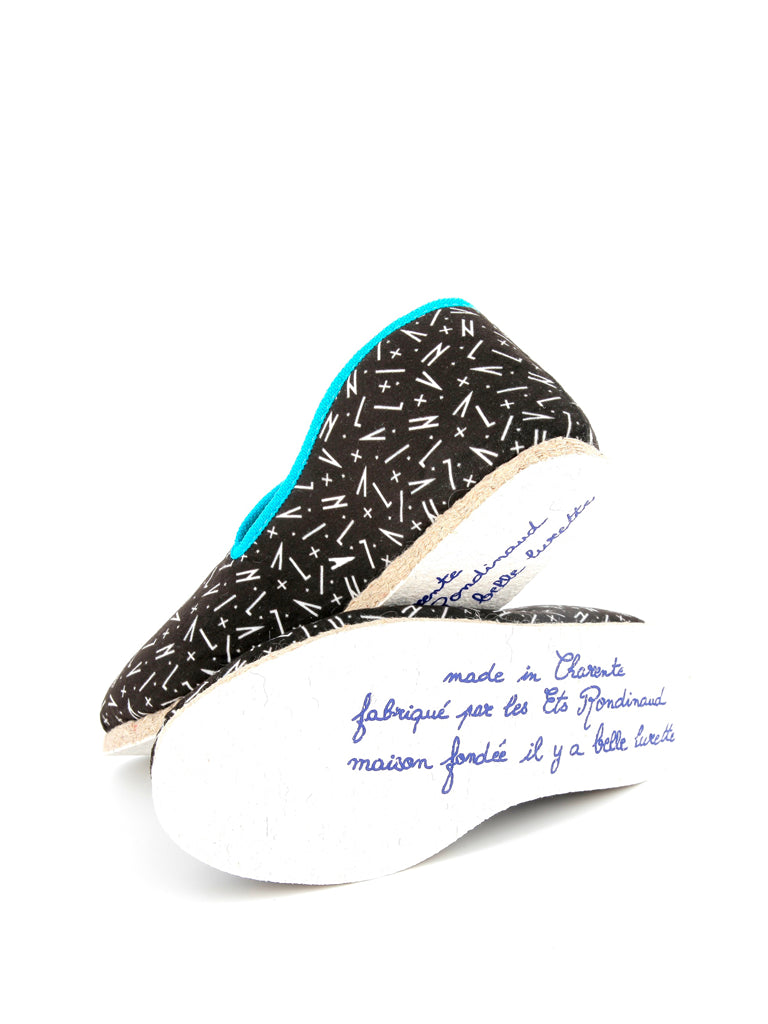 rente
Rondinaud
belle lurette
made in Charente
fabriqué par les Ets Rondinaud
maison fondée il y a belle lurette